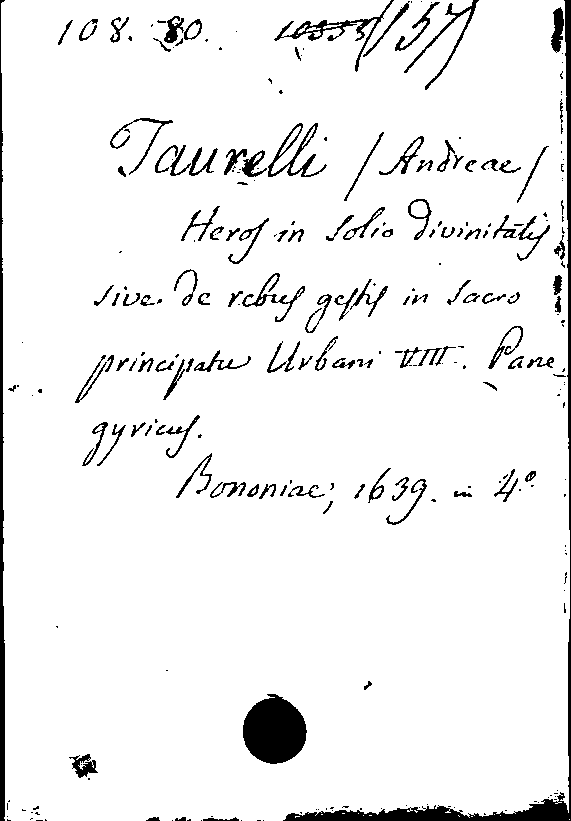 108. 80. (157)
Taurelli / Andreae /
Heros in solio divinitatis
sive de rebus gestis in sacro
principatu Urbani VIII. Pane_
gyricus.
Bononiae, 1639. in 4º